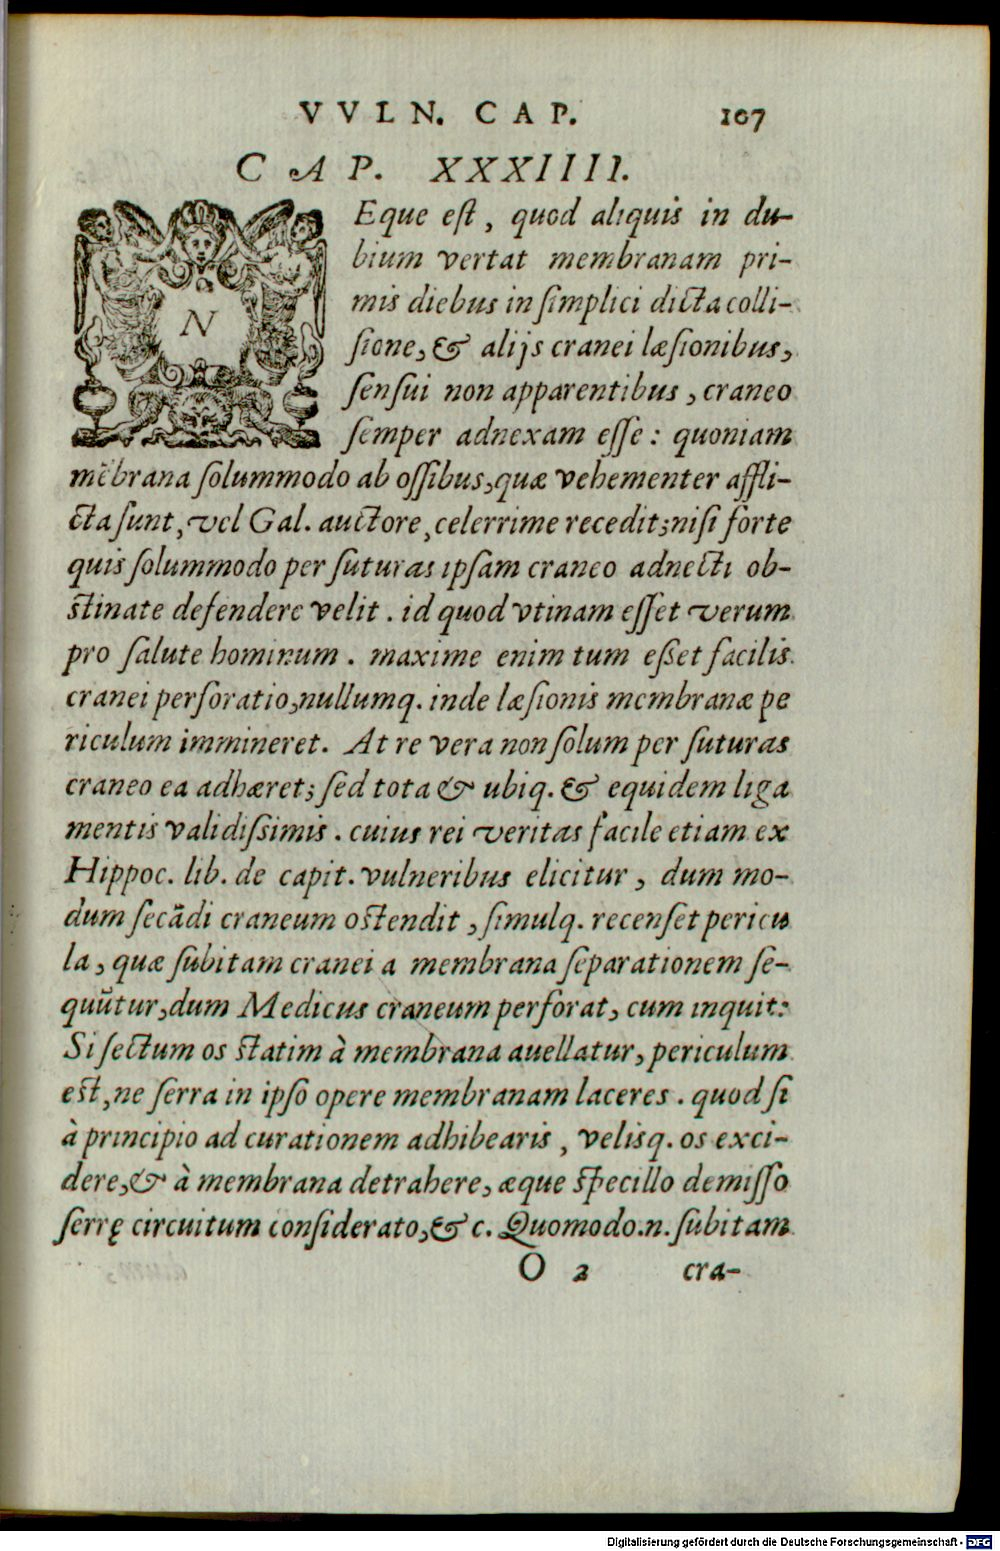 VVLN. CAP. 107
CAP. XXXIIII.
NEque est, quod aliquis in du-
bium vertat membranam pri-
mis diebus in simplici dicta colli-
sione, & alijs cranei læsionibus,
sensui non apparentibus, craneo
semper adnexam esse: quoniam
mēbrana solummodo ab ossibus, quæ vehementer affli-
cta sunt, vel Gal. auctore, celerrime recedit; nisi forte
quis solummodo per suturas ipsam craneo adnecti ob-
stinate defendere velit. id quod vtinam esset verum
pro salute hominum. maxime enim tum eßet facilis
cranei perforatio, nullumq. inde læsionis membranæ pe
riculum immineret. At re vera non solum per suturas
craneo ea adhæret; sed tota & ubiq. & equidem liga
mentis validissimis. cuius rei veritas facile etiam ex
Hippoc. lib. de capit. vulneribus elicitur, dum mo-
dum secādi craneum ostendit, simulq. recenset pericu
la, quæ subitam cranei a membrana separationem se-
quūtur, dum Medicus craneum perforat, cum inquit:
Si sectum os statim à membrana auellatur, periculum
est, ne serra in ipso opere membranam laceres. quod si
à principio ad curationem adhibearis, velisq. os exci-
dere, & à membrana detrahere, æque specillo demisso
serrę circuitum considerato, & c. Quomodo.n. subitam
O 2 cra-
Digitalisierung gefördert durch die Deutsche Forschungsgemeinschaft - DFG